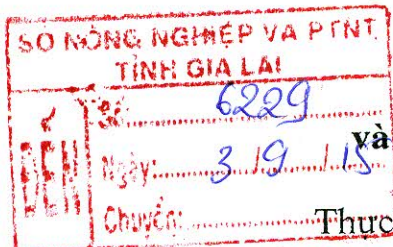 SỞ NÔNG NGHIỆP VÀ PTNT
TỈNH GIA LAI
ĐẾN
Số: 6229
Ngày: 3/9/15
Chuyển:
và
Thực